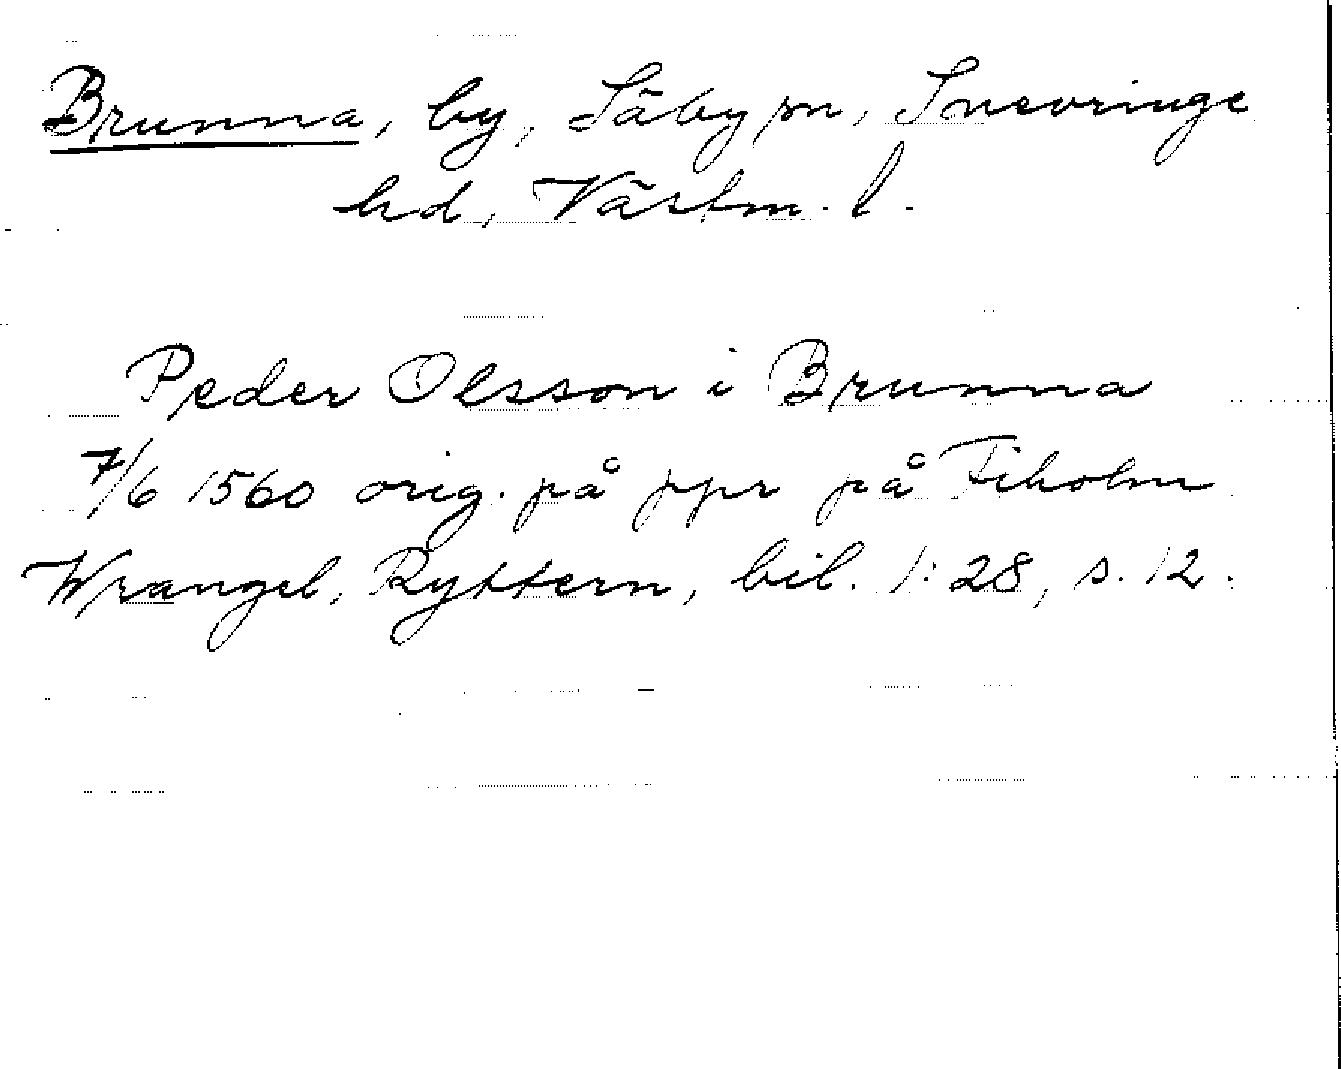 Brunna, by, Säby sn, Snevringe
hd, Västm. l.
Peder Olsson i Brunna
7/6 1560 orig. på ppr på Tiholm
Wrangel, Ryttern, bil. 1:28, s. 12.